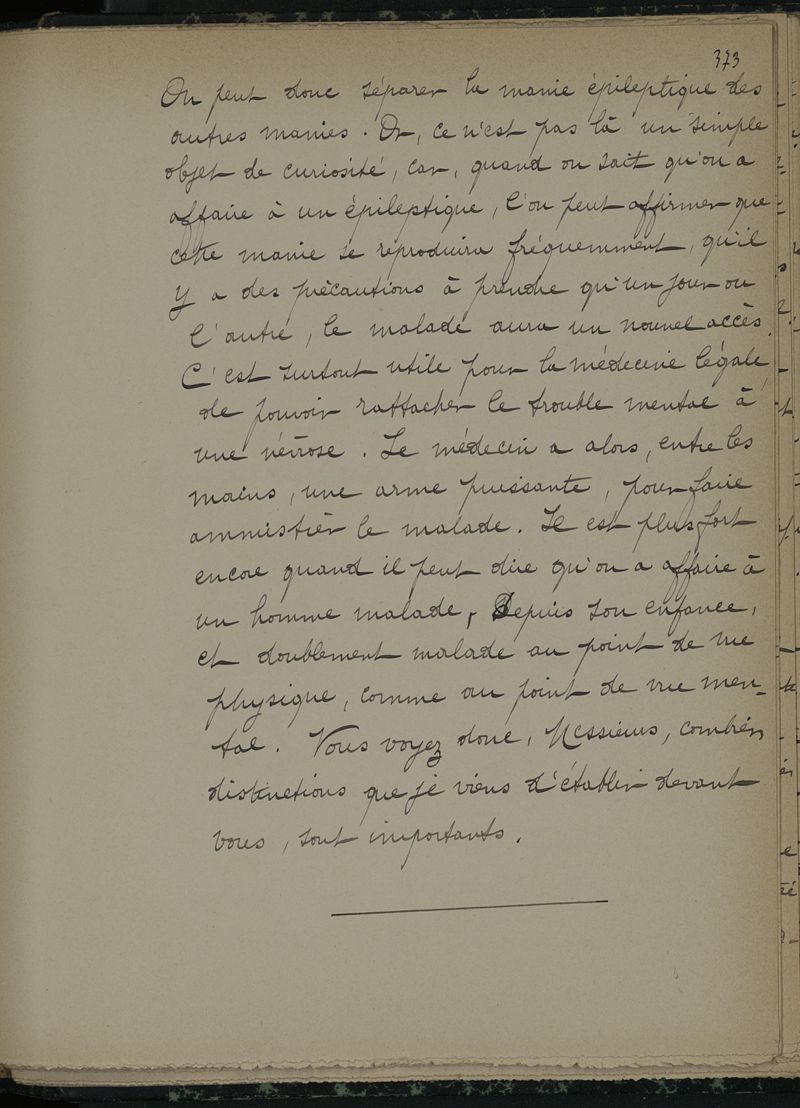 373
On peut donc séparer la manie épileptique des
autres manies. Or, ce n'est pas là un simple
objet de curiosité, car, quand on sait qu'on a
affaire à un épileptique, l'on peut affirmer que
cette manie se reproduira fréquemment, qu'il
y a des précautions à prendre qu'un jour ou
l'autre, le malade aura un nouvel accès.
C'est surtout utile pour la médecine légale
de pouvoir rattacher le trouble mental à
une névrose. Le médecin a alors, entre les
mains, une arme puissante, pour faire
amnistier le malade. Il est plus fort
encore quand il peut dire qu'on a affaire à
un homme malade, Depuis son enfance,
et doublement malade au point de vue
physique, comme au point de vue men-
tal. Vous voyez donc, Messieurs, combien
distinctions que je viens d'établir devant
vous, sont importants.